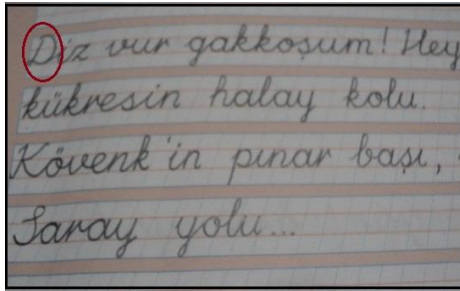 Diz vur gakkoşum! Hey
kükresin halay kolu.
Kövenk'in pınar başı,
Saray yolu...